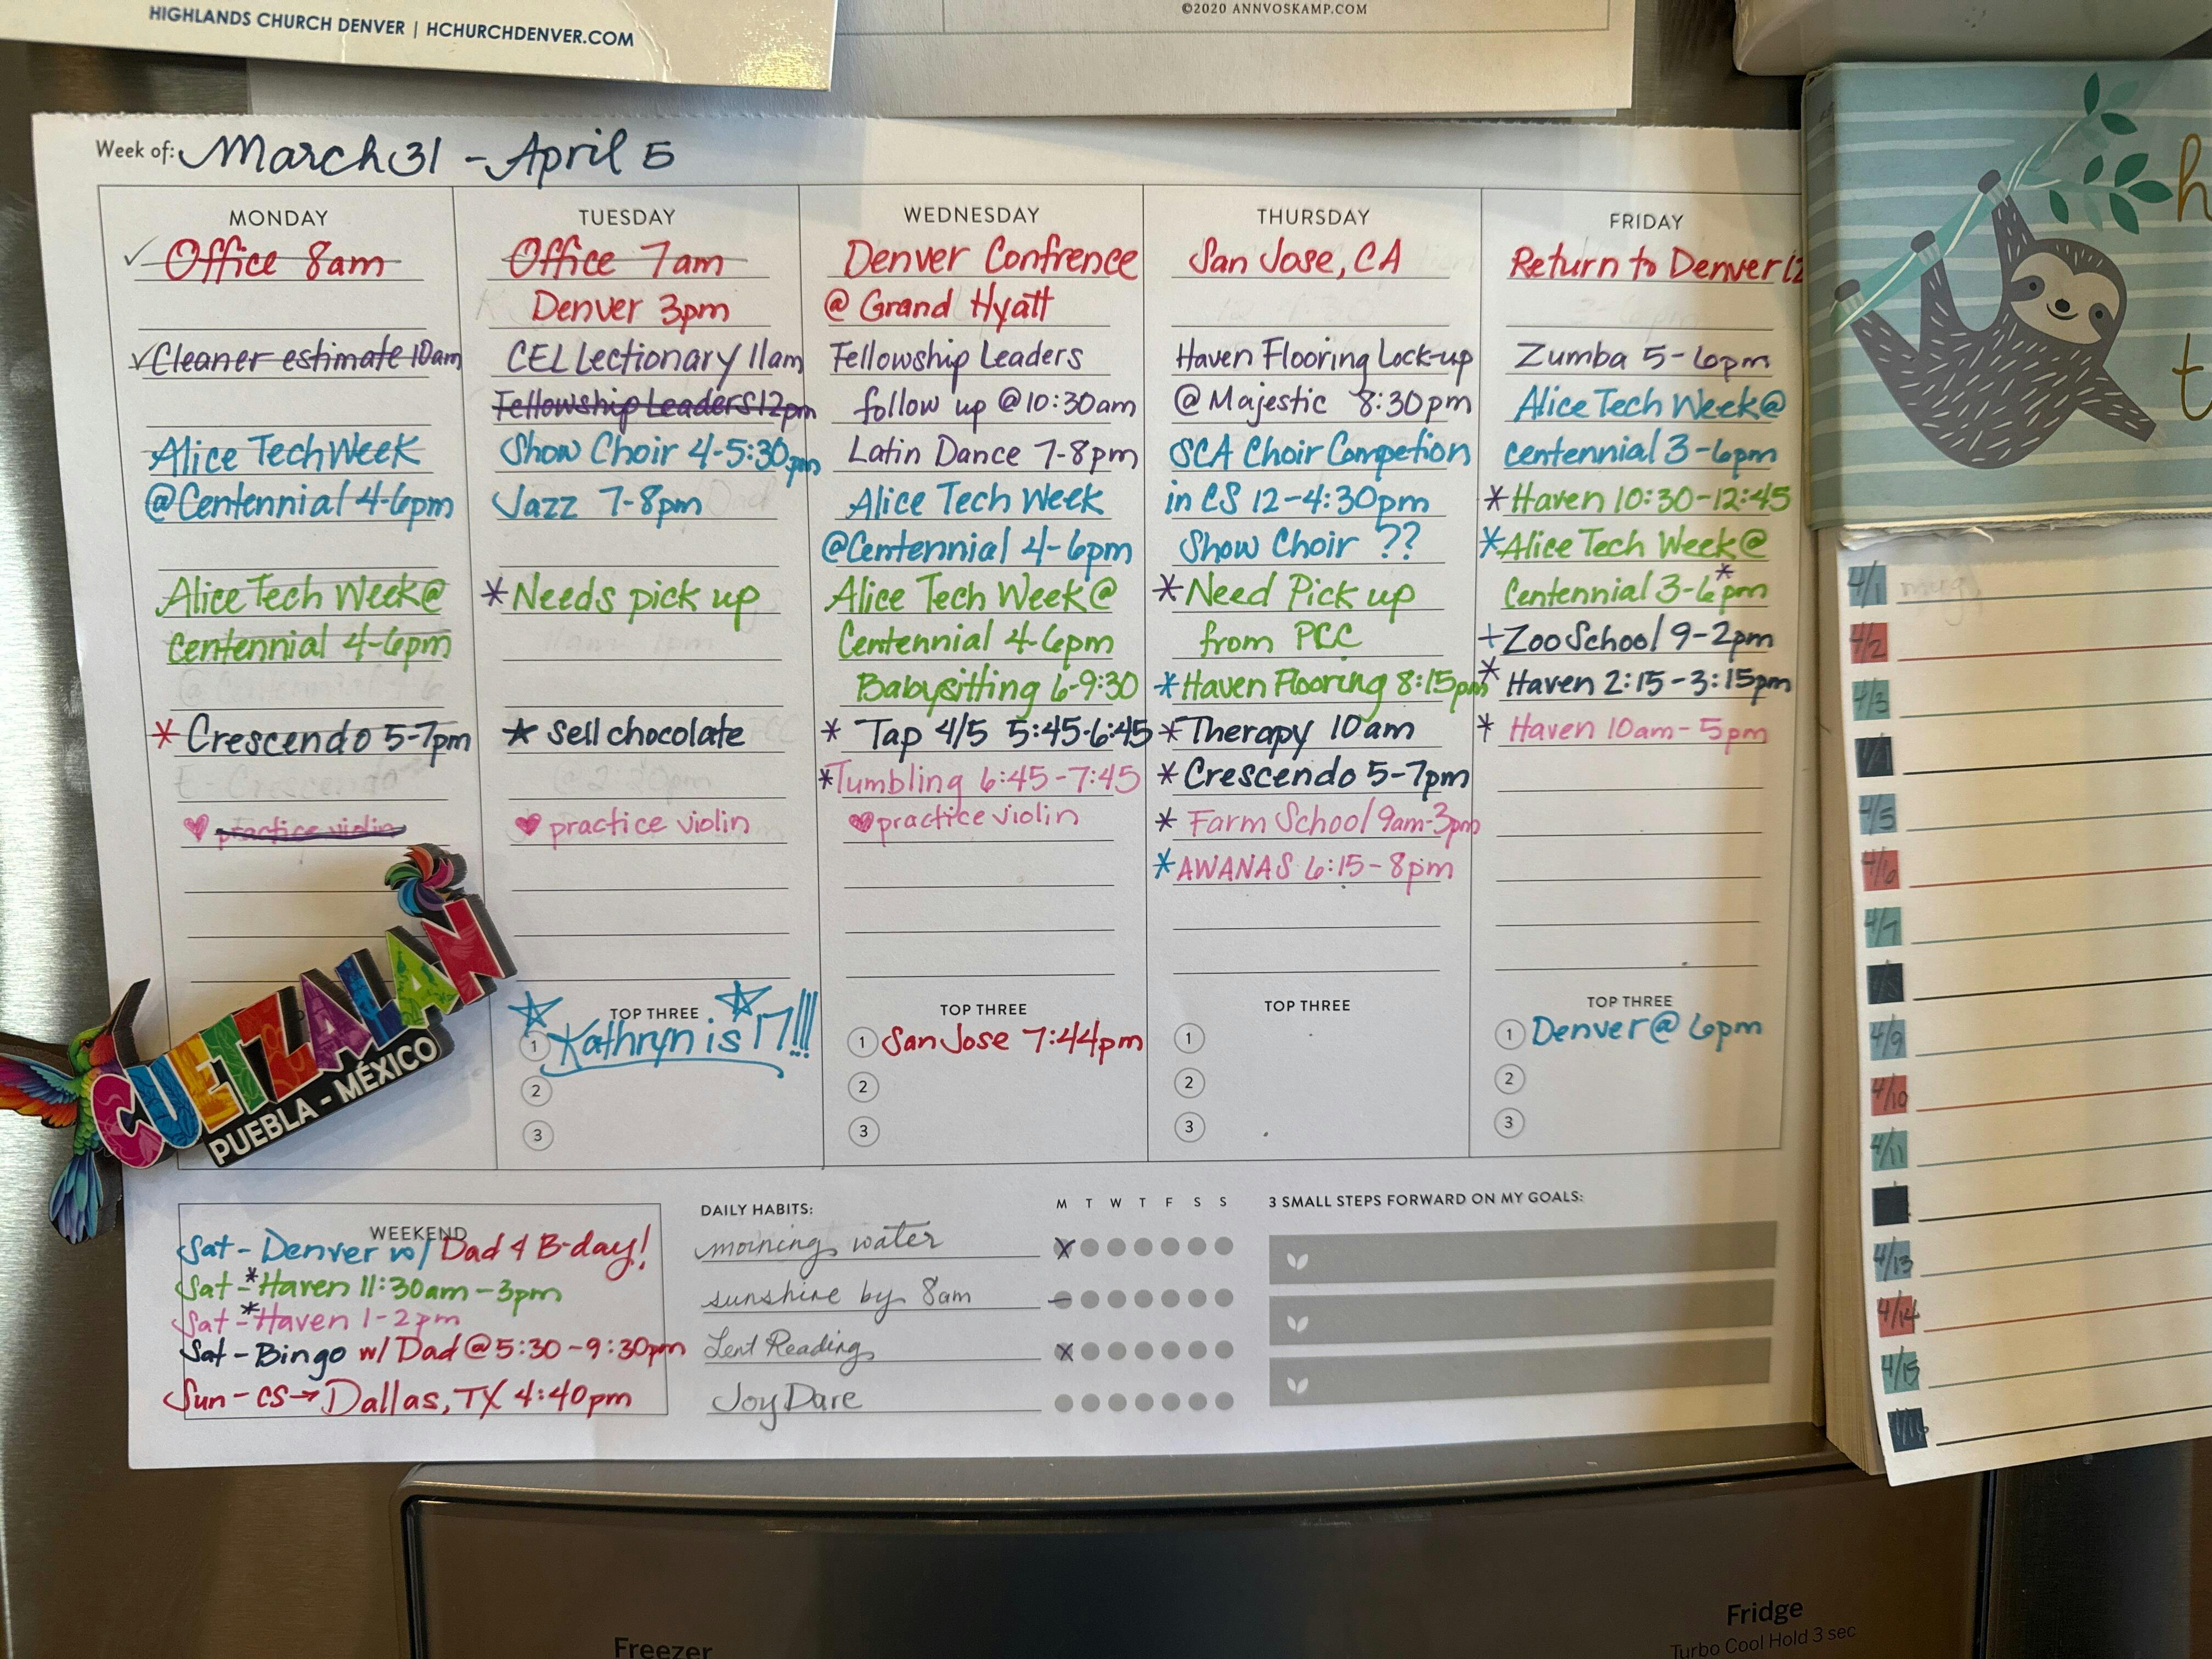 HIGHLANDS CHURCH DENVER | HCHURCHDENVER.COM
©2020 ANNVOSKAMP.COM
Week of: March 31 - April 5
MONDAY
✓ Office 8am
✓ Cleaner estimate 10am
Alice Tech Week
@Centennial 4-6pm
Alice Tech Week@
Centennial 4-6pm
* Crescendo 5-7pm
♥ practice violin
TUESDAY
Office 7am
Denver 3pm
CEL Lectionary 11am
Fellowship Leaders 12pm
Show Choir 4-5:30pm
Jazz 7-8pm
*Needs pick up
★ Sell chocolate
♥ practice violin
TOP THREE
1 Kathryn is 17!!!
2
3
WEDNESDAY
Denver Confrence
@ Grand Hyatt
Fellowship Leaders
follow up @10:30am
Latin Dance 7-8pm
Alice Tech Week
@Centennial 4-6pm
Alice Tech Week@
Centennial 4-6pm
Babysitting 6-9:30
* Tap 4/5 5:45-6:45
*Tumbling 6:45-7:45
♥ practice violin
TOP THREE
1 San Jose 7:44pm
2
3
THURSDAY
San Jose, CA
Haven Flooring Lock-up
@Majestic 8:30pm
SCA Choir Competion
in CS 12-4:30pm
Show Choir ??
*Need Pick up
from PCC
*Haven Flooring 8:15pm
*Therapy 10am
* Crescendo 5-7pm
* Farm School 9am-3pm
*AWANAS 6:15-8pm
TOP THREE
1
2
3
FRIDAY
Return to Denver
Zumba 5-6pm
Alice Tech Week@
Centennial 3-6pm
*Haven 10:30-12:45
*Alice Tech Week@
Centennial 3-6pm
+Zoo School 9-2pm
* Haven 2:15-3:15pm
* Haven 10am-5pm
TOP THREE
1 Denver@ 6pm
2
3
CUETZALAN
PUEBLA - MÉXICO
WEEKEND
Sat - Denver w/ Dad 4 B-day!
Sat-*Haven 11:30am-3pm
Sat-*Haven 1-2pm
Sat-Bingo w/ Dad @5:30-9:30pm
Sun-CS→Dallas, TX 4:40pm
DAILY HABITS: M T W T F S S
morning water
sunshine by 8am
Lent Reading
Joy Dare
3 SMALL STEPS FORWARD ON MY GOALS:
h
t
4/1 mug
4/2
4/3
4/5
4/6
4/7
4/9
4/10
4/11
4/13
4/14
4/15
Freezer
Fridge
Turbo Cool Hold 3 sec